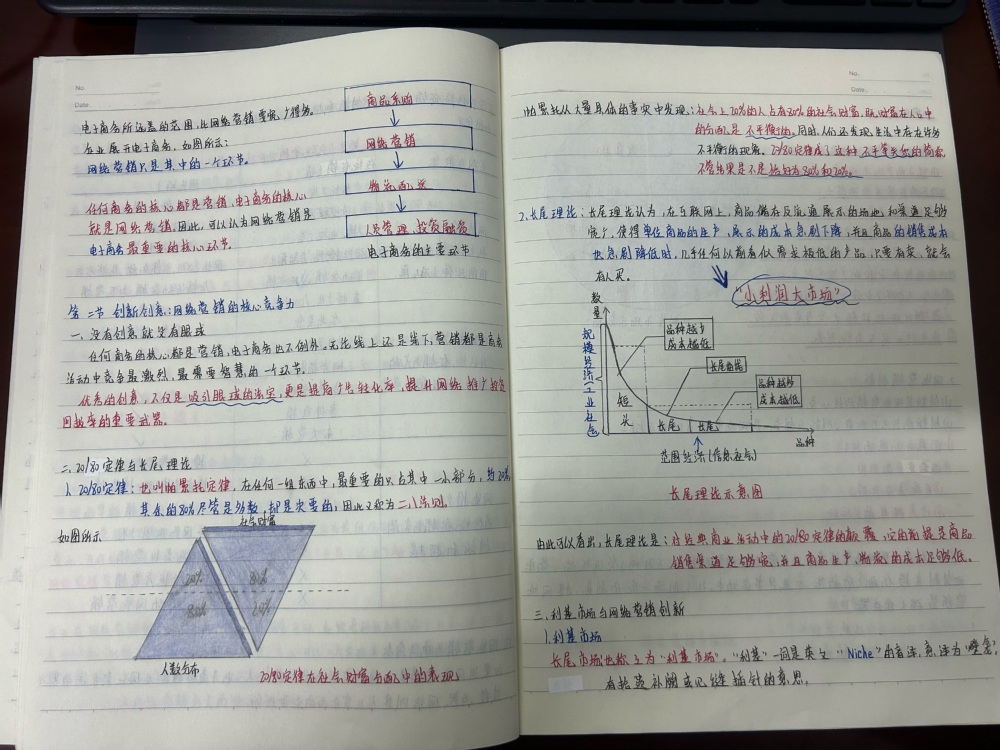 No.
Date.
电子商务所涵盖的范围,比网络营销要宽广得多。
企业展开电子商务,如图所示:
网络营销只是其中的一个环节。
任何商务的核心都是营销,电子商务的核心
就是网络营销,因此,可以认为网络营销是
电子商务最重要的核心环节。
商品采购
网络营销
物流配送
人员管理、投资融资
电子商务的主要环节
第二节 创新创意:网络营销的核心竞争力
一、没有创意就没有眼球
任何商务的核心都是营销,电子商务也不例外。无论线上还是线下,营销都是商务
活动中竞争最激烈,最需要智慧的一个环节。
优秀的创意,不仅是吸引眼球的法宝,更是提高广告转化率,提升网络推广投资
回报率的重要武器。
二、20/80定律与长尾理论
1、20/80定律:也叫帕累托定律,在任何一组东西中,最重要的只占其中一小部分,约20%
其余的80%尽管是多数,却是次要的,因此又称为二八法则。
如图所示
社会财富
20% 80%
80% 20%
人数分布
20/80定律在社会财富分配中的表现
No.
Date.
帕累托从大量具体的事实中发现:社会上20%的人占有80%的社会财富,既财富在人口中
的分配是不平衡的。同时,人们还发现生活中存在许多
不平衡的现象。20/80定律成了这种不平等关系的简称,
不管结果是不是恰好为80%和20%。
2.长尾理论:长尾理论认为,在互联网上,商品储存及流通展示的场地和渠道足够
宽广,使得单位商品的生产、展示的成本急剧下降,并且商品的销售成本
也急剧降低时,几乎任何以前看似需求极低的产品,只要有卖,就会
有人买。
“小利润大市场”
数量
规模经济(工业社会)
品种越少
成本越低
长尾曲线
品种越多
成本越低
短头
长尾
长尾
品种
范围经济(信息社会)
长尾理论示意图
由此可以看出,长尾理论是:对经典商业活动中的20/80定律的颠覆,它的前提是商品
销售渠道足够宽,并且商品生产、物流的成本足够低。
三、利基市场与网络营销创新
1.利基市场
长尾市场也称之为“利基市场”。“利基”一词是英文“Niche”的音译,意译为“壁龛”,
有拾遗补缺或见缝插针的意思。